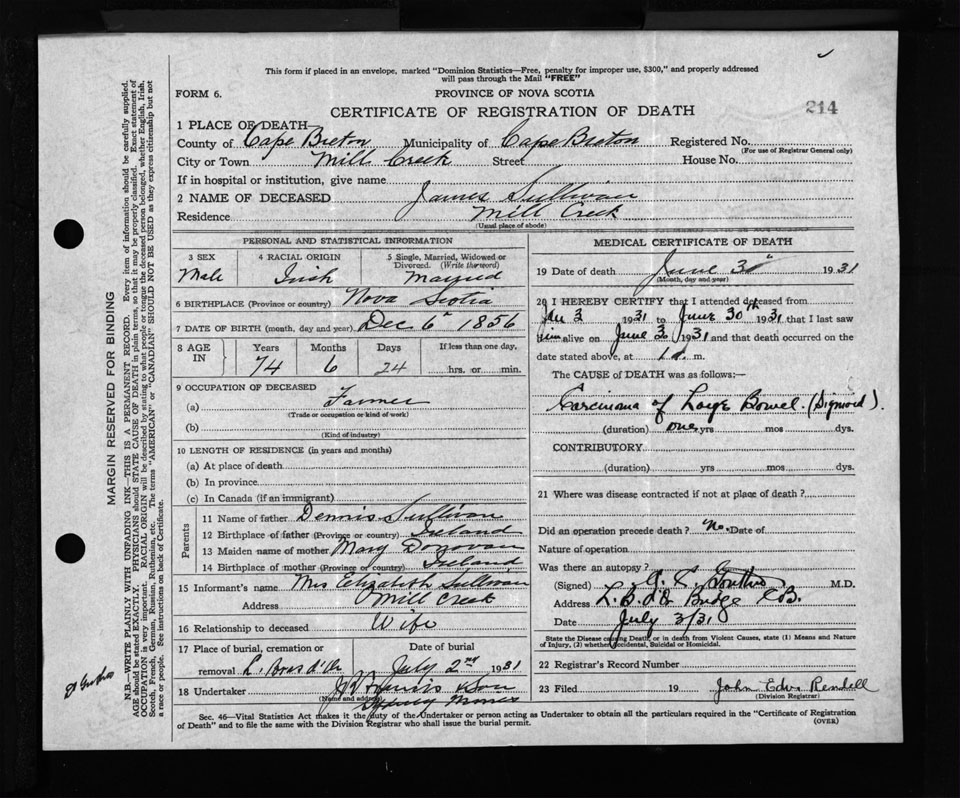 This form if placed in an envelope, marked "Dominion Statistics—Free, penalty for improper use, $300," and properly addressed
will pass through the Mail "FREE"
FORM 6. PROVINCE OF NOVA SCOTIA
CERTIFICATE OF REGISTRATION OF DEATH 214
1 PLACE OF DEATH
County of Cape Breton Municipality of Cape Breton Registered No.
(For use of Registrar General only)
City or Town Mill Creek Street House No.
If in hospital or institution, give name
2 NAME OF DECEASED James Sullivan
Residence Mill Creek
(Usual place of abode)
PERSONAL AND STATISTICAL INFORMATION
3 SEX 4 RACIAL ORIGIN 5 Single, Married, Widowed or
Divorced. (Write the word)
Male Irish Married
6 BIRTHPLACE (Province or country) Nova Scotia
7 DATE OF BIRTH (month, day and year) Dec 6th 1856
8 AGE IN Years Months Days If less than one day.
74 6 24 hrs. or min.
9 OCCUPATION OF DECEASED
(a) Farmer
(Trade or occupation or kind of work)
(b)
(Kind of industry)
10 LENGTH OF RESIDENCE (in years and months)
(a) At place of death
(b) In province
(c) In Canada (if an immigrant)
Parents
11 Name of father Dennis Sullivan
12 Birthplace of father (Province or country) Ireland
13 Maiden name of mother Mary Donovan
14 Birthplace of mother (Province or country) Ireland
15 Informant's name Mrs Elizabeth Sullivan
Address Mill Creek
16 Relationship to deceased Wife
17 Place of burial, cremation or Date of burial
removal L. Bras d'Or July 2nd 1931
18 Undertaker & Son
(Name and address)
Sydney Mines
MEDICAL CERTIFICATE OF DEATH
19 Date of death June 30th 1931
(Month, day and year)
20 I HEREBY CERTIFY that I attended deceased from
3 1931 to June 30th 1931 that I last saw
him alive on June 1931 and that death occurred on the
date stated above, at m.
The CAUSE of DEATH was as follows:—
Carcinoma of Large Bowel. (Sigmoid).
(duration) one yrs mos dys.
CONTRIBUTORY
(duration) yrs mos dys.
21 Where was disease contracted if not at place of death?
Did an operation precede death? No. Date of
Nature of operation
Was there an autopsy?
(Signed) M.D.
Address L. B. d'Or Bridge C.B.
Date July 3/31
State the Disease causing Death, or in death from Violent Causes, state (1) Means and Nature
of Injury, (2) whether Accidental, Suicidal or Homicidal.
22 Registrar's Record Number
23 Filed 19 John Edw Rendell
(Division Registrar)
Sec. 46—Vital Statistics Act makes it the duty of the Undertaker or person acting as Undertaker to obtain all the particulars required in the "Certificate of Registration
of Death" and to file the same with the Division Registrar who shall issue the burial permit. (OVER)
MARGIN RESERVED FOR BINDING
N.B.—WRITE PLAINLY WITH UNFADING INK—THIS IS A PERMANENT RECORD. Every item of information should be carefully supplied.
AGE should be stated EXACTLY. PHYSICIANS should STATE CAUSE OF DEATH in plain terms, so that it may be properly classified. Exact statement of
OCCUPATION is very important. RACIAL ORIGIN will be described by stating to what people or tongue the deceased person belonged, whether English, Irish,
Scotch, French, German, Russian, Ruthenian, etc. The terms "AMERICAN" or "CANADIAN" SHOULD NOT BE USED as they express citizenship but not
a race or people. See instructions on back of Certificate.